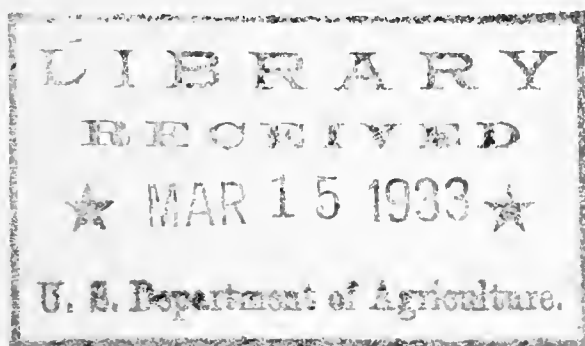 LIBRARY
RECEIVED
★ MAR 15 1933 ★
U. S. Department of Agriculture.